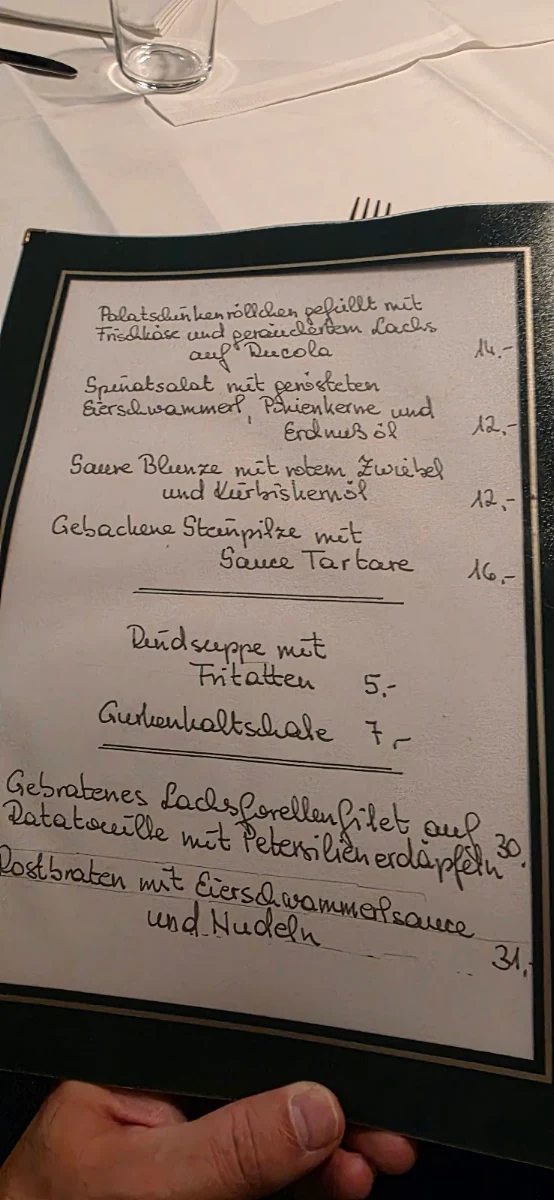 Palatschinkenröllchen gefüllt mit
Frischkäse und geräuchertem Lachs
auf Rucola 14.-
Spinatsalat mit gerösteten
Eierschwammerl, Pinienkerne und
Erdnußöl 12.-
Saure Blunze mit rotem Zwiebel
und Kürbiskernöl 12.-
Gebackene Steinpilze mit
Sauce Tartare 16.-
Rindsuppe mit
Fritatten 5.-
Gurkenkaltschale 7.-
Gebratenes Lachsforellenfilet auf
Ratatouille mit Petersilienerdäpfeln 30.
Rostbraten mit Eierschwammerlsauce
und Nudeln 31.-